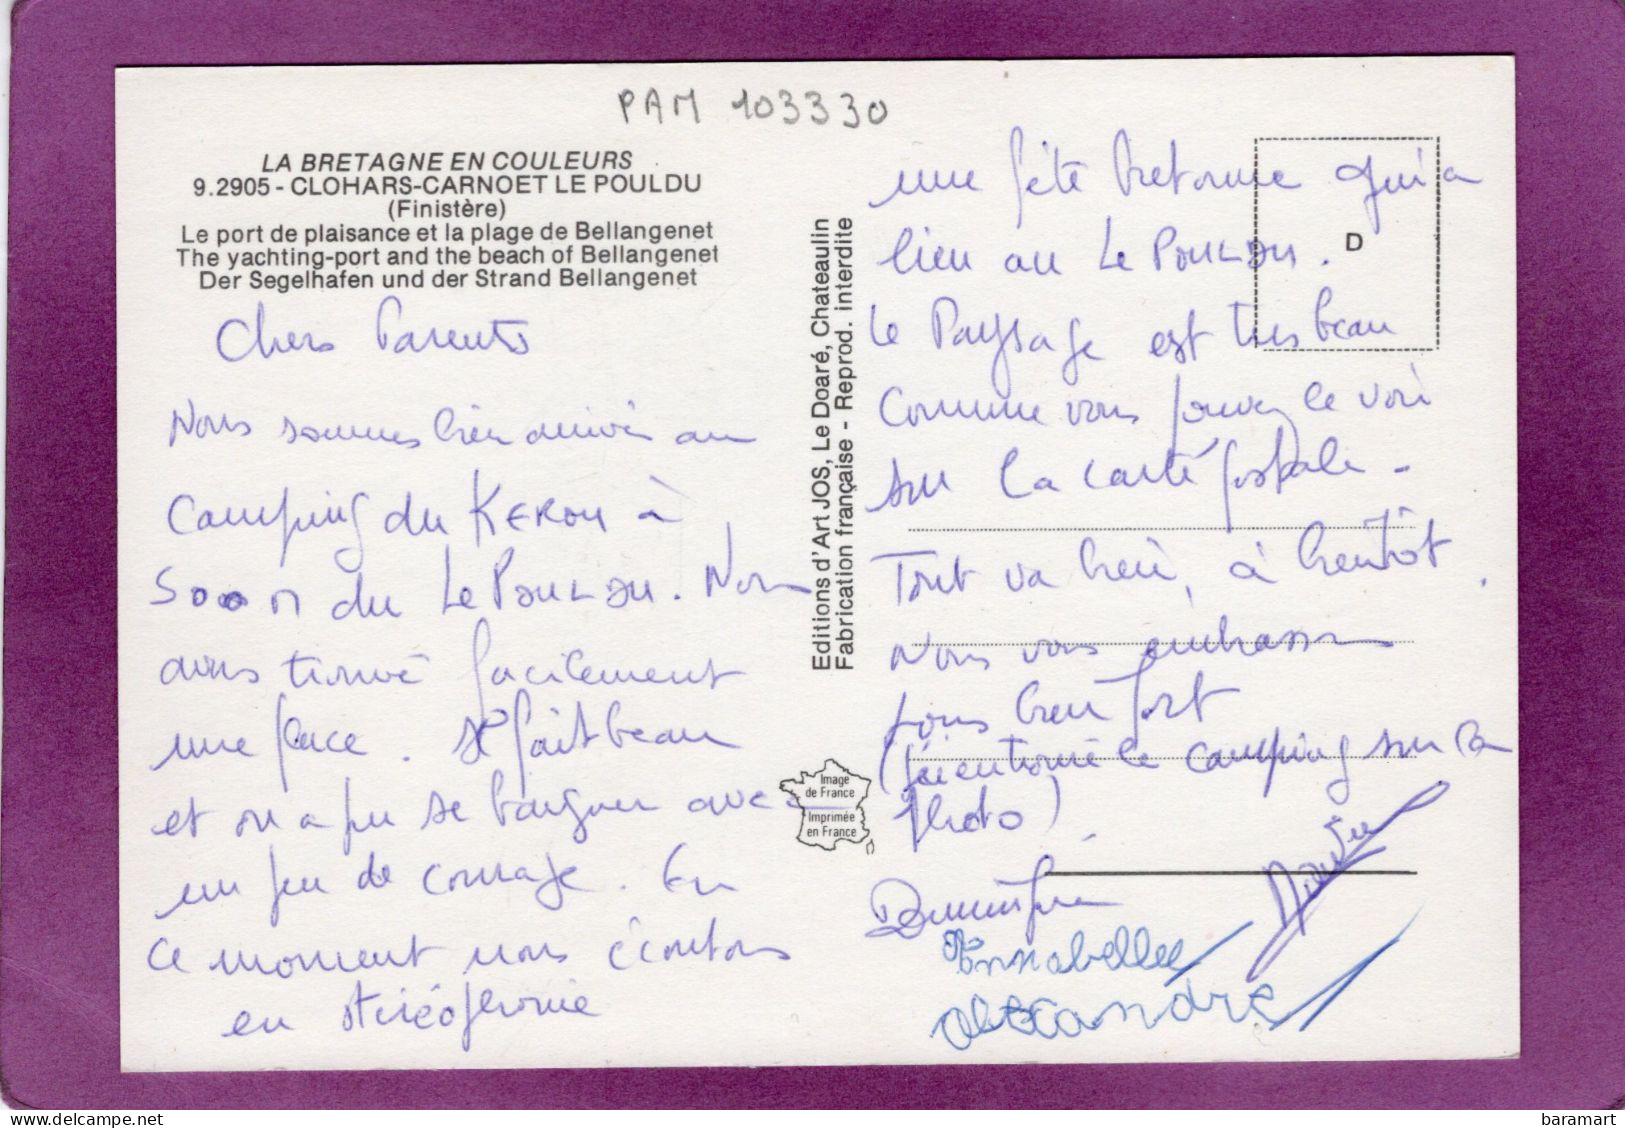 PAM 103330
LA BRETAGNE EN COULEURS
9.2905 - CLOHARS-CARNOET LE POULDU
(Finistère)
Le port de plaisance et la plage de Bellangenet
The yachting-port and the beach of Bellangenet
Der Segelhafen und der Strand Bellangenet
Chers Parents
Nous sommes bien arrivés au
Camping du KEROU à
500 M du LE POULDU. Nous
avons trouvé facilement
une place. Il fait beau
et on a pu se baigner avec
un peu de courage. En
ce moment nous écoutons
en stéréophonie
Editions d'Art JOS, Le Doaré, Chateaulin
Fabrication française - Reprod. interdite
Image
de France
Imprimée
en France
D
une fête bretonne qui a
lieu au LE POULDU.
Le Paysage est tres beau
Comme vous pouvez le voir
sur la carte postale -
Tout va bien, à bientôt.
Nous vous embrassons
tous bien fort
(j'ai entouré le camping sur la
photo).
Dominique
Annabelle
Alexandre
baramart